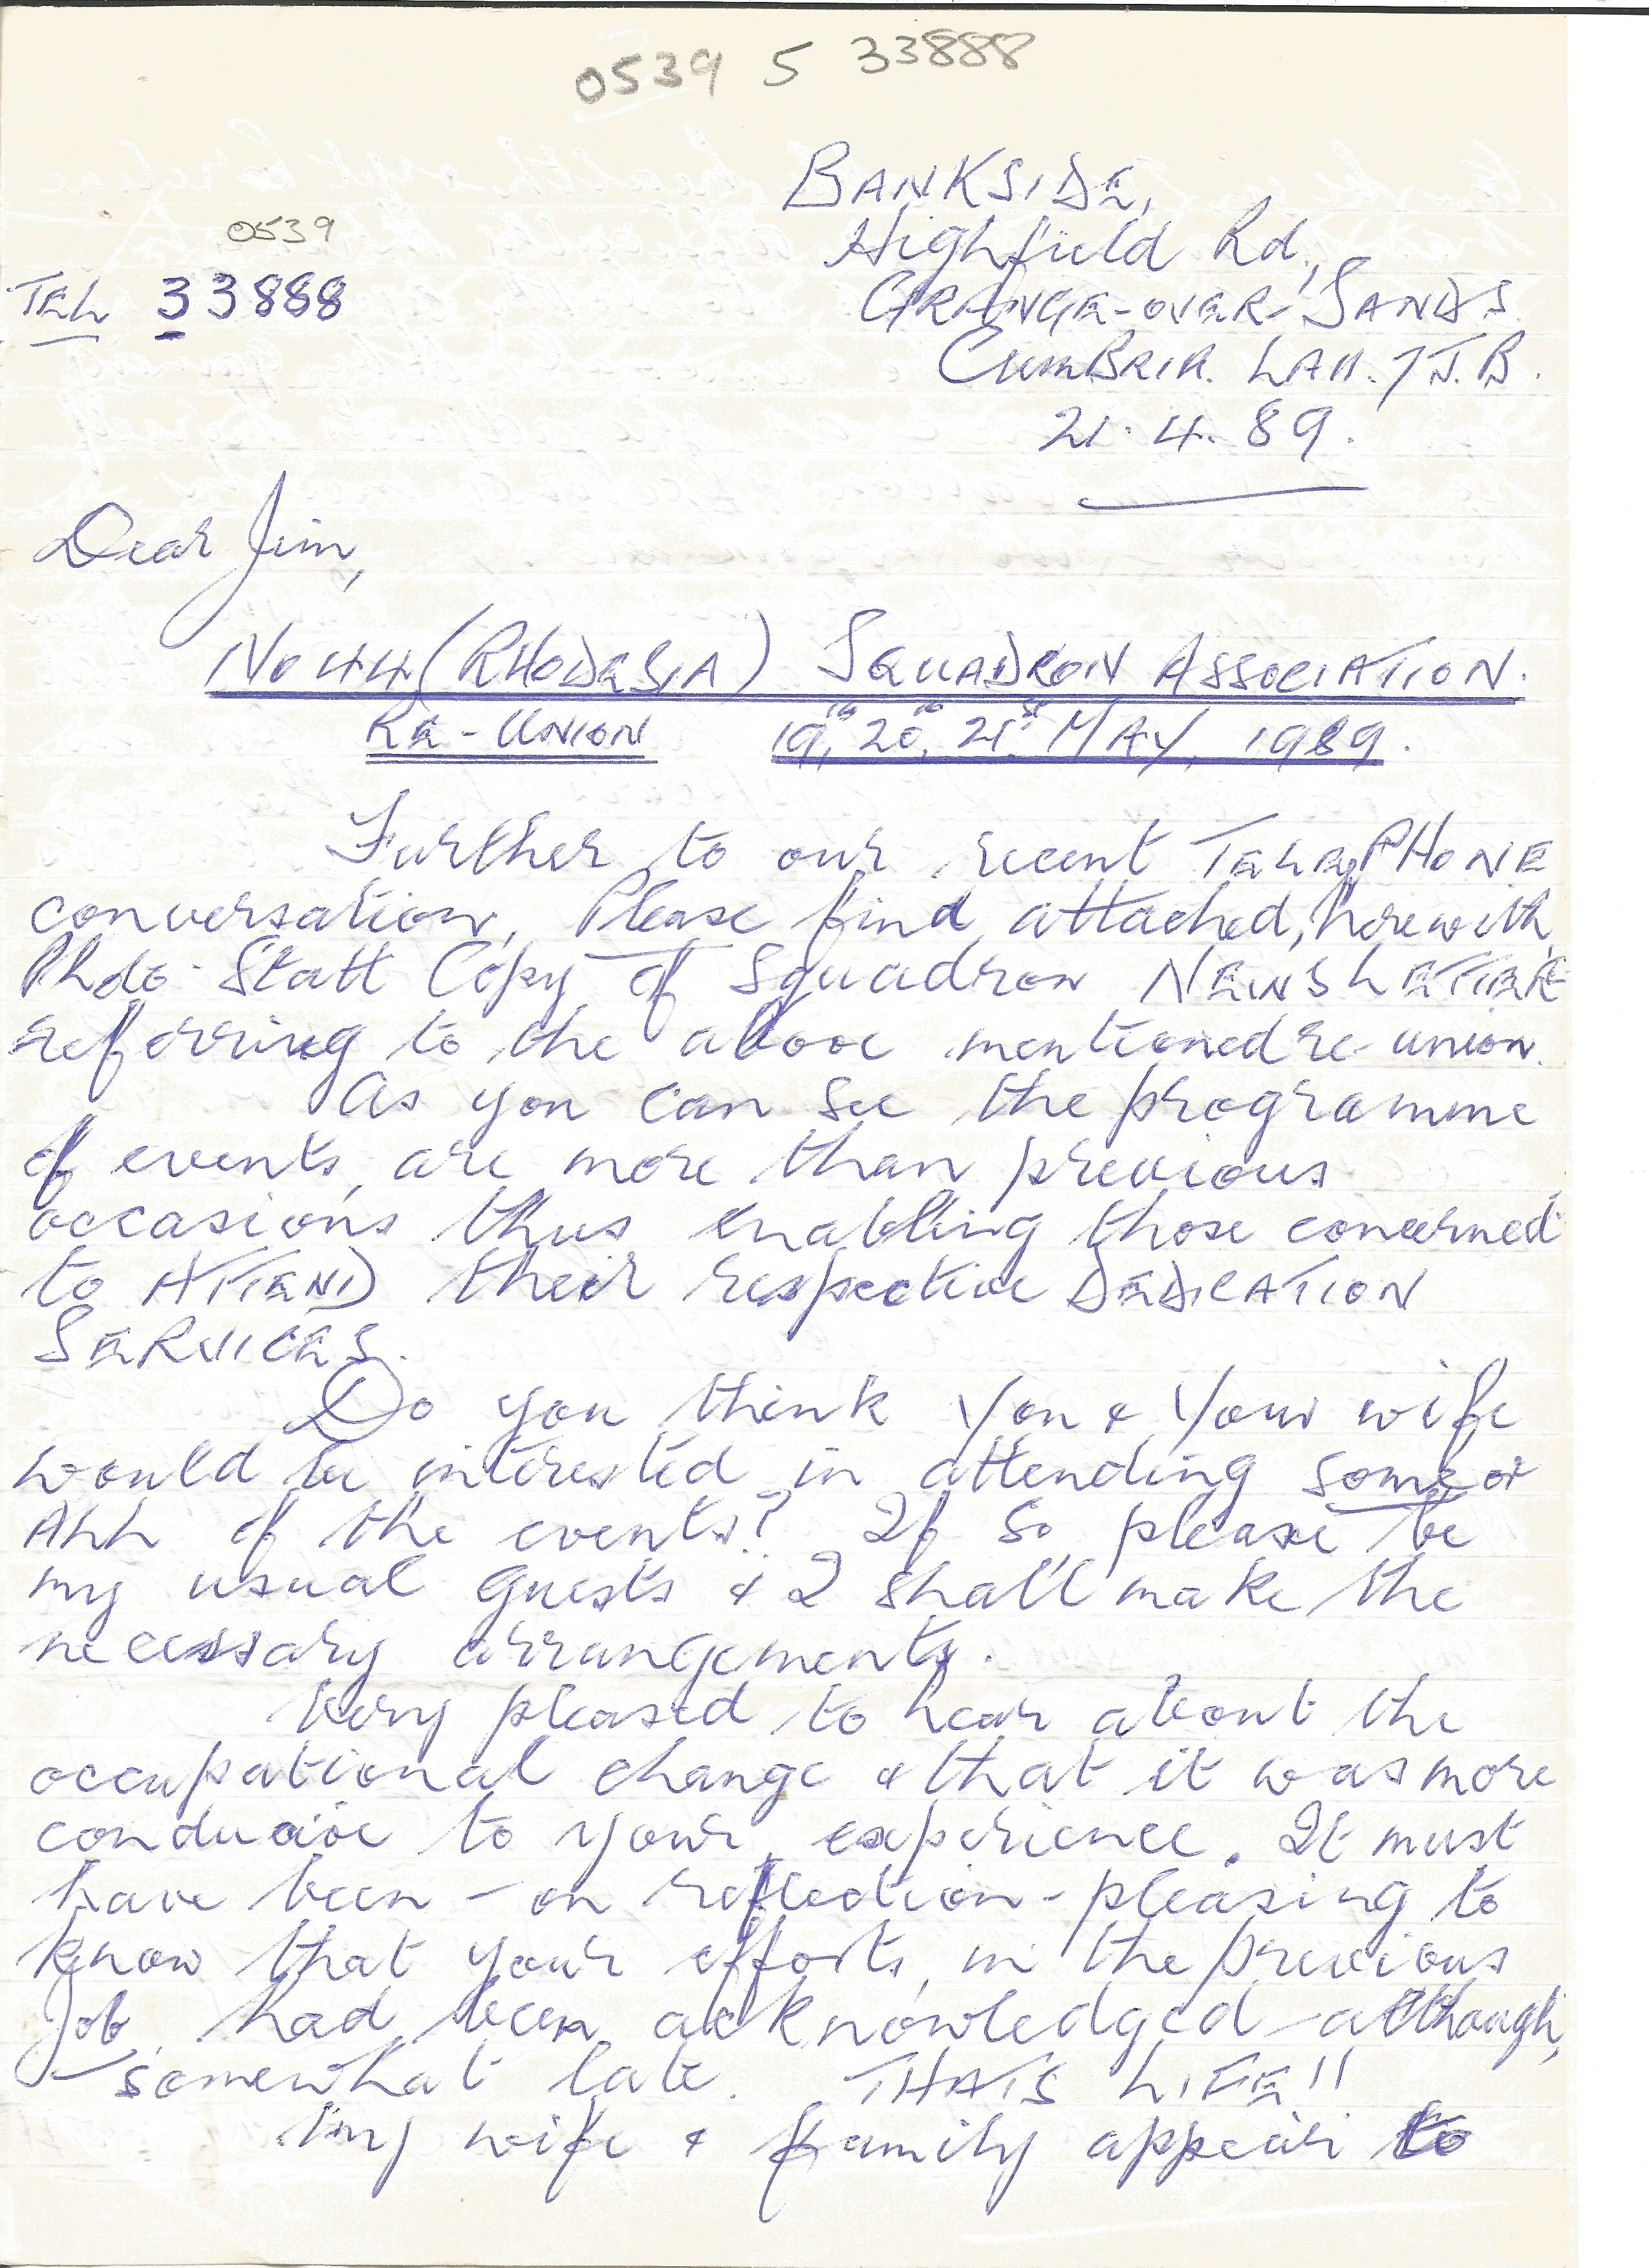 0539 5 33888
BANKSIDE,
Highfield Rd.,
GRANGE-OVER-SANDS
CUMBRIA. LA11. 7J.B.
0539
TEL 33888
21.4.89.
Dear Jim,
No 44 (RHODESIA) SQUADRON ASSOCIATION.
RE-UNION 19th, 20th, 21st MAY, 1989.
Further to our recent TELEPHONE
conversation, Please find attached, herewith,
Photo-Statt Copy of Squadron NEWSLETTER
referring to the above mentioned re-union.
As you can see the programme
of events, are more than previous
occasions thus enabling those concerned
to ATTEND their respective DEDICATION
SERVICES.
Do you think You & Your wife
would be interested in attending some or
ALL of the events? If so please be
my usual guests & I shall make the
necessary arrangements.
Very pleased to hear about the
occupational change & that it was more
conducive to your experience. It must
have been - on reflection - pleasing to
know that your efforts, in the previous
Job, had been acknowledged - although,
somewhat late. THATS LIFE!!
My wife & family appear to